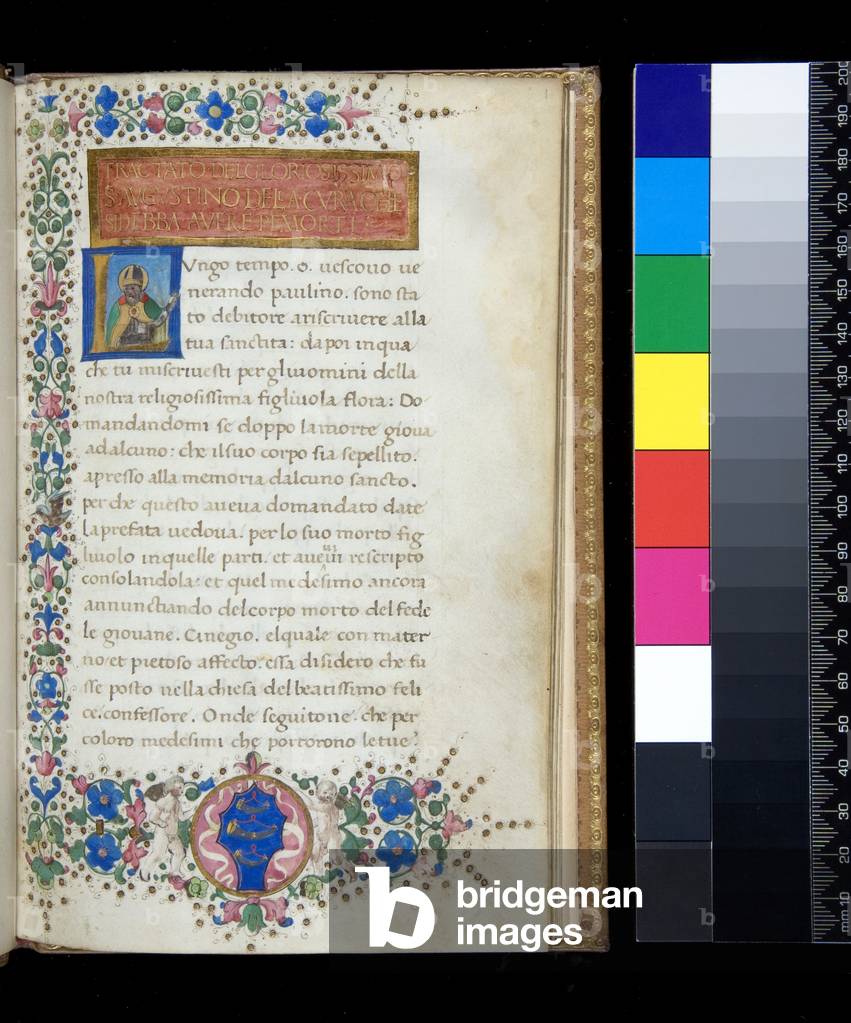 TRACTATO DEL GLORIOSISSIMO
S. AVGVSTINO DELLA CVRA CHE
SI DEBBA AVERE PE MORTI
LVngo tempo. o. uescouo ue
nerando paulino. sono sta
to debitore ariscriuere alla
tua sanctita: da poi inqua
che tu miscriuesti per gliuomini della
nostra religiosissima figliuola flora: Do
mandandomi se doppo la morte gioua
ad alcuno: che il suo corpo sia sepellito.
apresso alla memoria dalcuno sancto.
perche questo aueua domandato date
la prefata uedoua. per lo suo morto fig
liuolo inquelle parti. et aueui rescripto
consolandola: et quel medesimo ancora
annunctiando del corpo morto del fede
le giouane. Cinegio. elquale con mater
no et pietoso affecto. essa disidero che fu
sse posto nella chiesa del beatissimo feli
ce. confessore. Onde seguitone. che per
coloro medesimi che portorono le tue
200
190
180
170
160
150
140
130
120
110
100
90
80
70
60
50
40
30
20
mm 10
b bridgeman
images